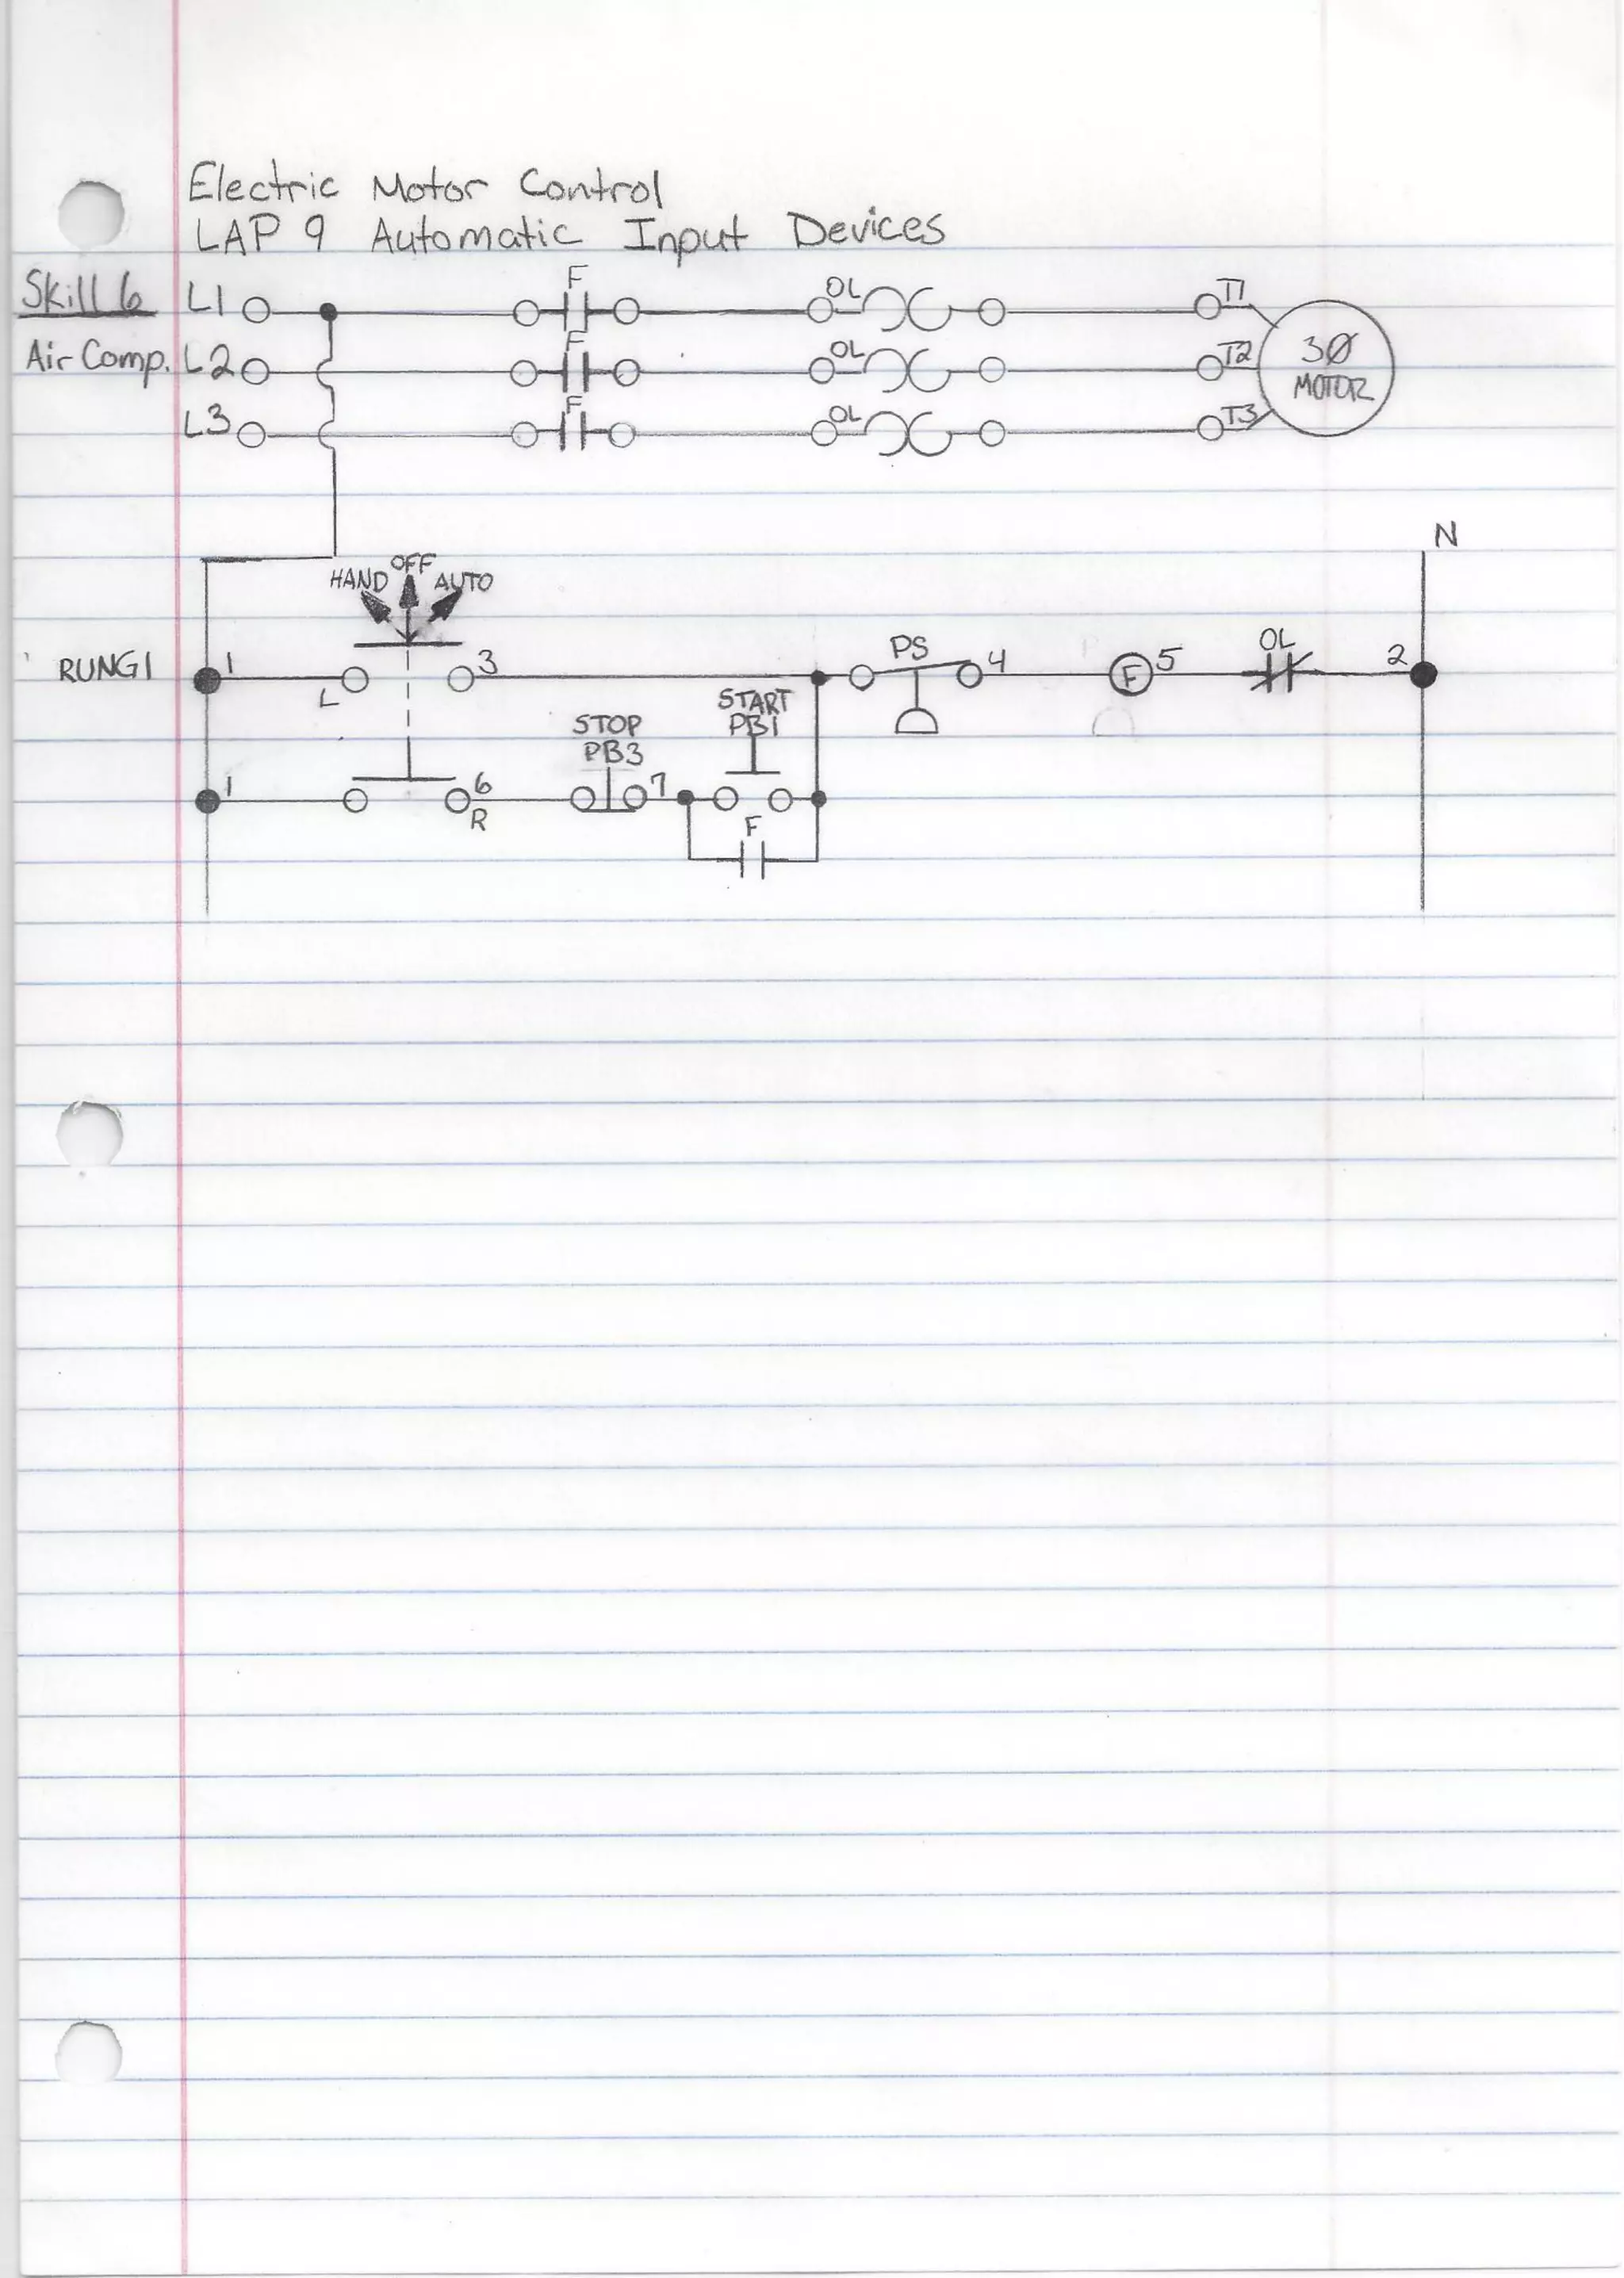 Electric Motor Control
LAP 9 Automatic Input Devices
Skill 6
Air Comp.
L1 F OL T1
L2 F OL T2
L3 F OL T3
3Ø
MOTOR
N
HAND OFF AUTO
RUNG 1 1 L 3 PS 4 F 5 OL 2
STOP
PB3
START
PB1
1 6 R 7
F